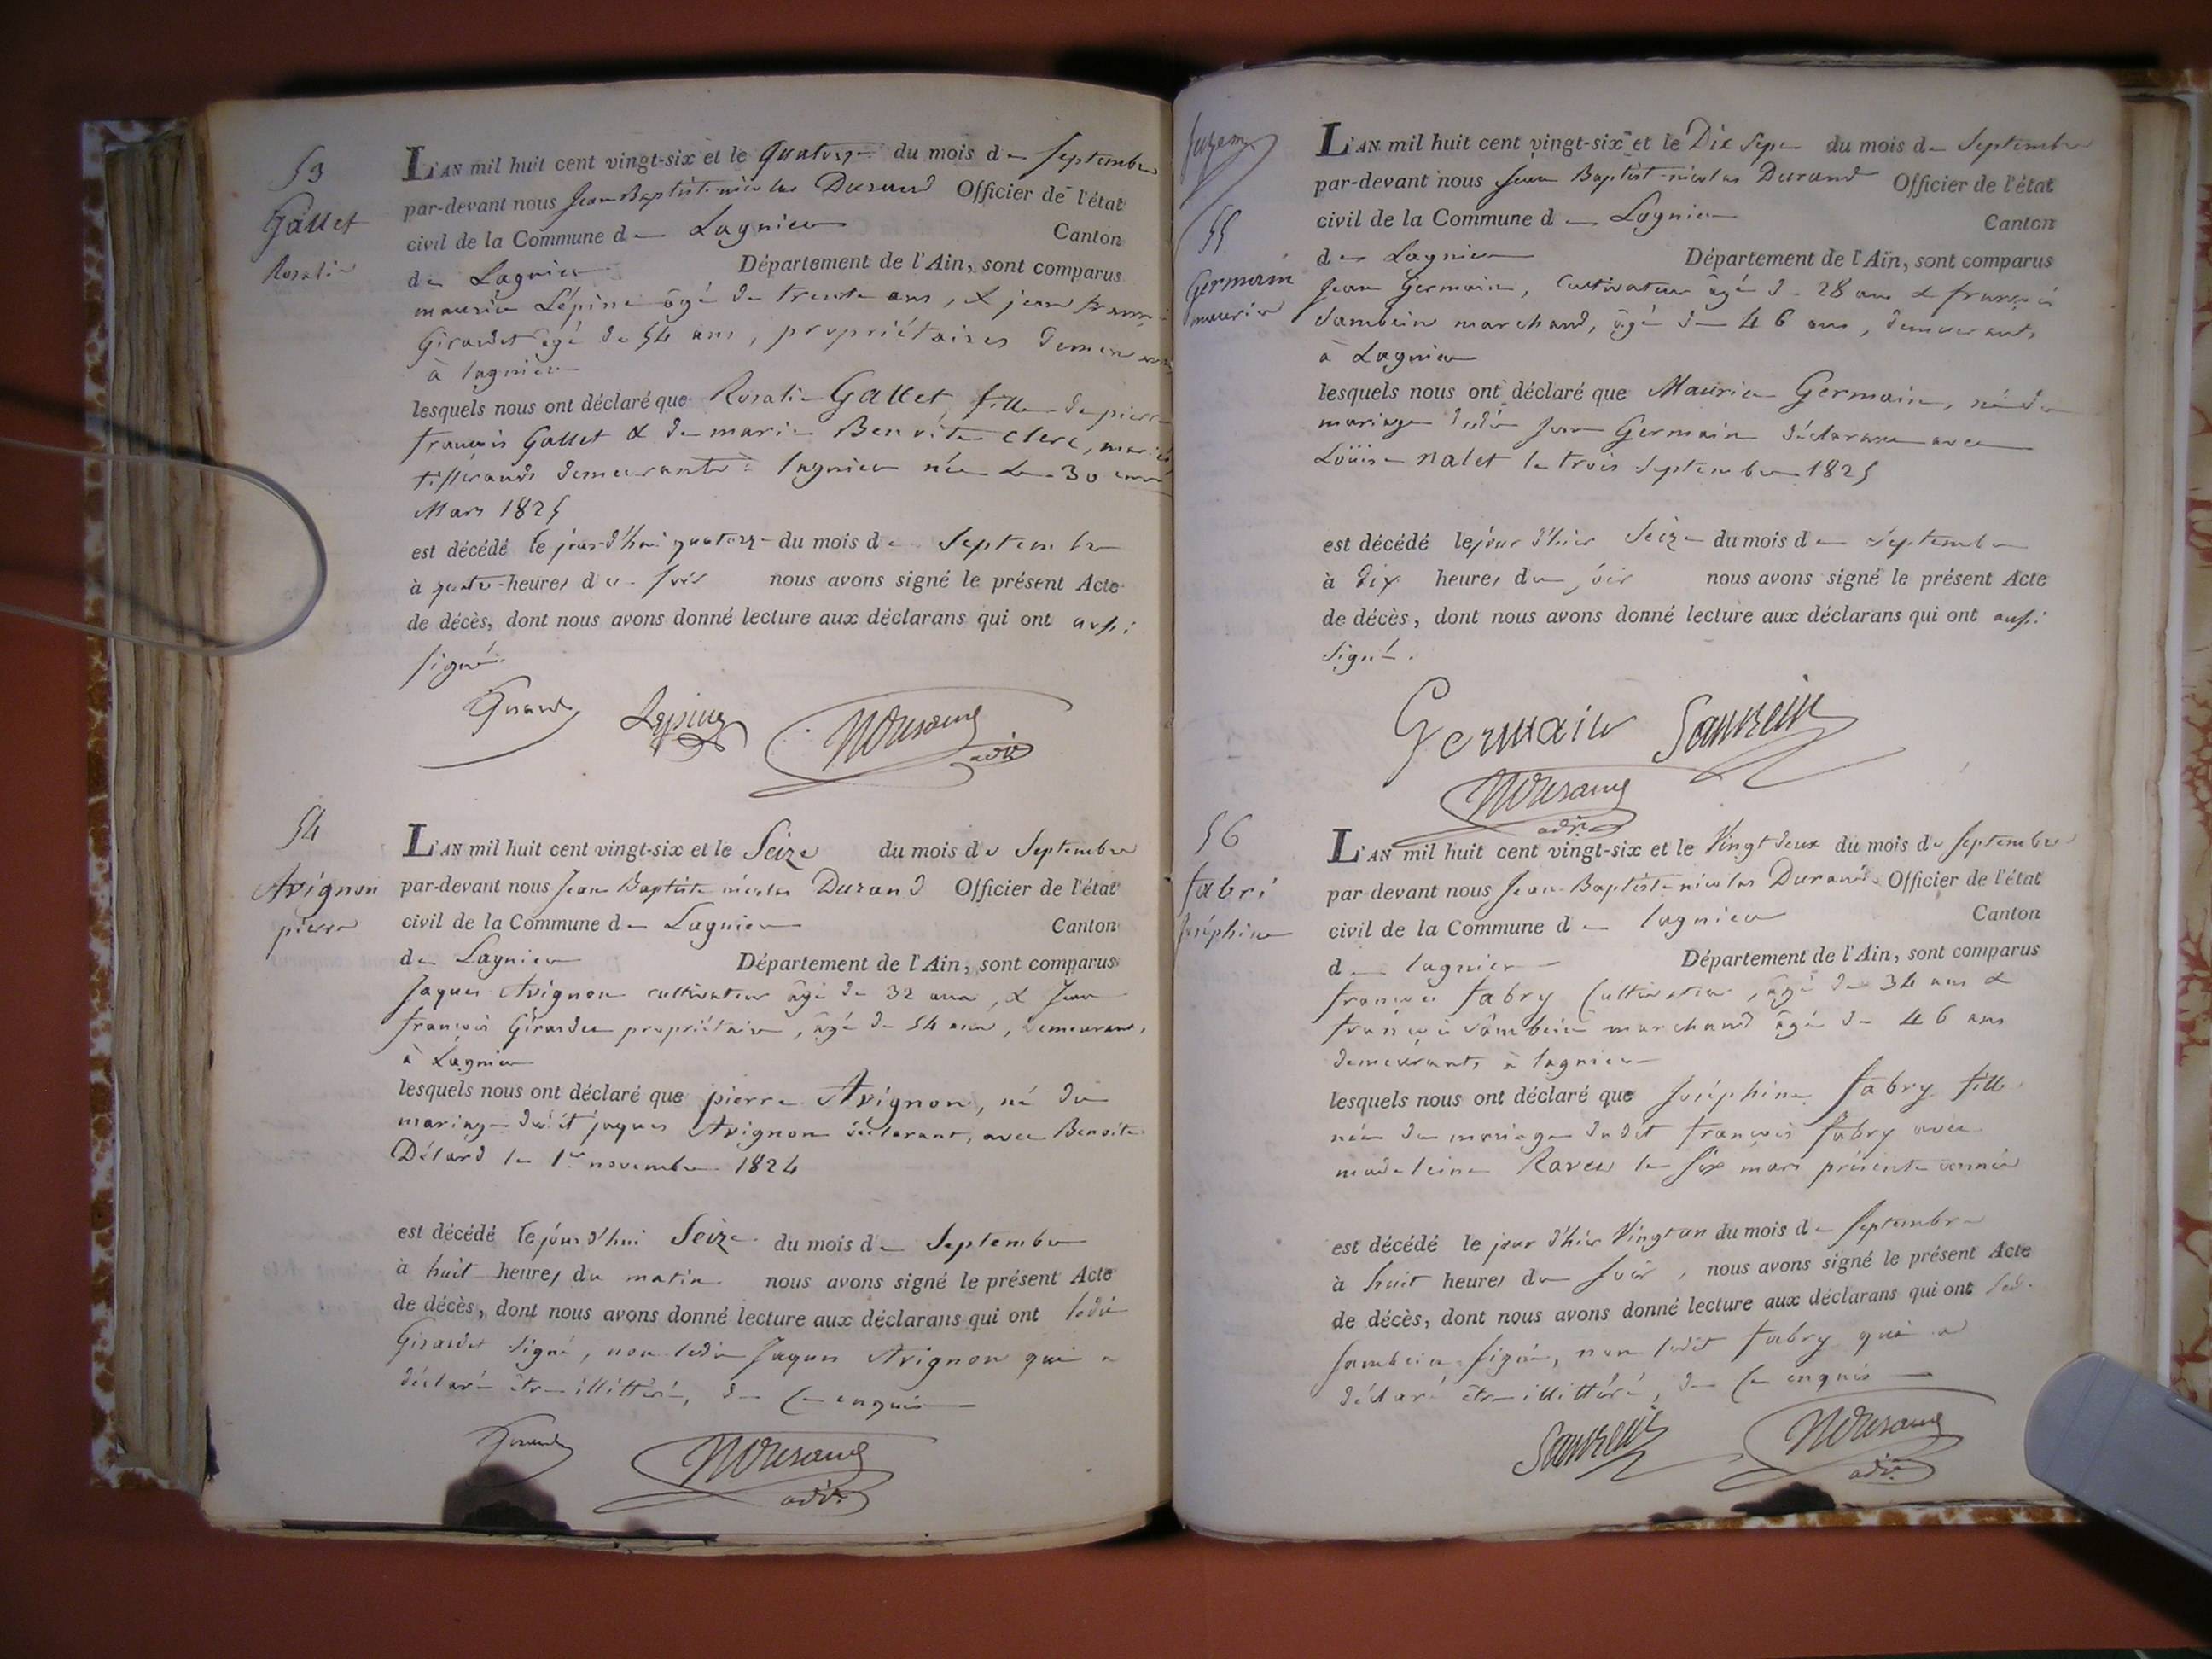 53
Gallet
Rosalie
L'AN mil huit cent vingt-six et le quatorze du mois de Septembre
par-devant nous Jean Baptiste nicolas Durand Officier de l'état
civil de la Commune de Lagnieu Canton
de Lagnieu Département de l'Ain, sont comparus
maurice Lépine âgé de trente ans, & jean françois
Girardet âgé de 54 ans, propriétaires demeurant
à lagnieu
lesquels nous ont déclaré que Rosalie Gallet, fille de pierre
françois Gallet & de marie Benoite Clerc, mariés
tisserands demeurants à lagnieu née le 30
Mars 1825
est décédé le jourd'hui quatorze du mois de Septembre
à quatre heures du soir nous avons signé le présent Acte
de décès, dont nous avons donné lecture aux déclarans qui ont aussi
signé.
Girardet Lepine NDurand adjt
54
Avignon
pierre
L'AN mil huit cent vingt-six et le Seize du mois de Septembre
par-devant nous Jean Baptiste nicolas Durand Officier de l'état
civil de la Commune de Lagnieu Canton
de Lagnieu Département de l'Ain, sont comparus
Jaques Avignon cultivateur âgé de 32 ans, & Jean
françois Girardet propriétaire, âgé de 54 ans, demeurans,
à Lagnieu
lesquels nous ont déclaré que pierre Avignon, né du
mariage dudit jaques Avignon déclarant, avec Benoite
Détard le 1er novembre 1824
est décédé le jourd'hui Seize du mois de Septembre
à huit heures du matin nous avons signé le présent Acte
de décès, dont nous avons donné lecture aux déclarans qui ont ledit
Girardet Signé, non ledit Jaques Avignon qui a
déclaré être illittéré, de ce enquis
Girardet NDurand adjt
55
Germain
maurice
L'AN mil huit cent vingt-six et le Dix Sept du mois de Septembre
par-devant nous Jean Baptiste nicolas Durand Officier de l'état
civil de la Commune de Lagnieu Canton
de Lagnieu Département de l'Ain, sont comparus
Jean Germain, Cultivateur âgé de 28 ans & françois
Sambein marchand, âgé de 46 ans, demeurants
à Lagnieu
lesquels nous ont déclaré que Maurice Germain, né du
mariage dudit Jean Germain déclarant avec
Loüise nalet le trois Septembre 1825
est décédé le jour d'hier Seize du mois de Septembre
à dix heures du soir nous avons signé le présent Acte
de décès, dont nous avons donné lecture aux déclarans qui ont aussi
signé.
Germain Sambein
NDurand
adjt
56
fabri
Joséphine
L'AN mil huit cent vingt-six et le Vingt deux du mois de Septembre
par-devant nous Jean Baptiste nicolas Durand Officier de l'état
civil de la Commune de lagnieu Canton
de lagnieu Département de l'Ain, sont comparus
françois fabry Cultivateur, âgé de 34 ans &
françois Sambein marchand âgé de 46 ans
demeurants à lagnieu
lesquels nous ont déclaré que Joséphine fabry fille
née du mariage dudit françois fabry avec
madeleine Ravet le Six mars présente année
est décédé le jour d'hier Vingt un du mois de Septembre
à huit heures du Soir, nous avons signé le présent Acte
de décès, dont nous avons donné lecture aux déclarans qui ont led.
Sambein signé, non ledit fabry qui a
déclaré être illittéré, de ce enquis
Sambein NDurand adjt